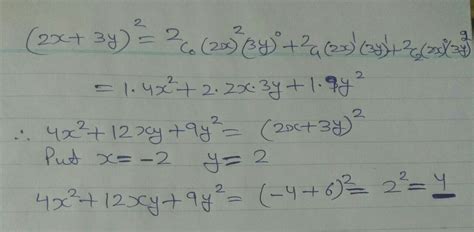 (2x+3y)² = ²C₀(2x)²(3y)⁰+²C₁(2x)¹(3y)¹+²C₂(2x)⁰(3y)²
= 1·4x²+2·2x·3y+1·9y²
∴ 4x²+12xy+9y² = (2x+3y)²
Put x=-2 y=2
4x²+12xy+9y² = (-4+6)² = 2² = 4